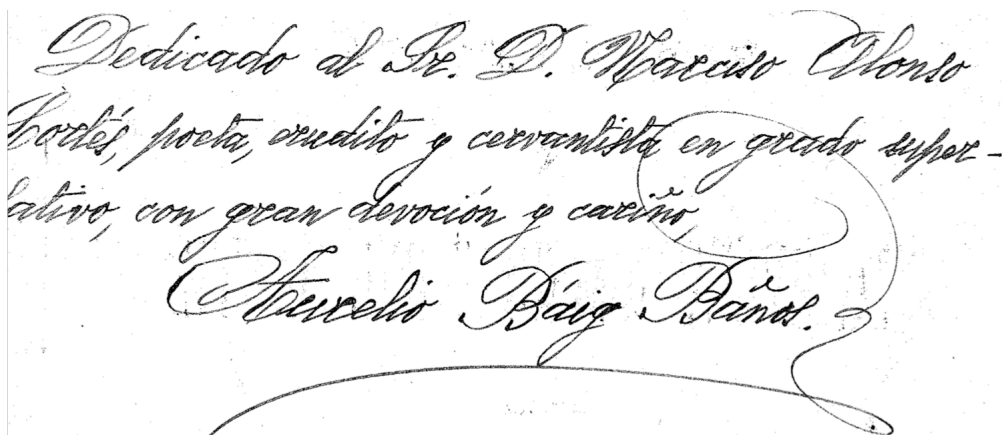 Dedicado al Sr. D. Narciso Alonso
Cortés, poeta, erudito y cervantista en grado super-
lativo, con gran devoción y cariño,
Aurelio Báig Báños.